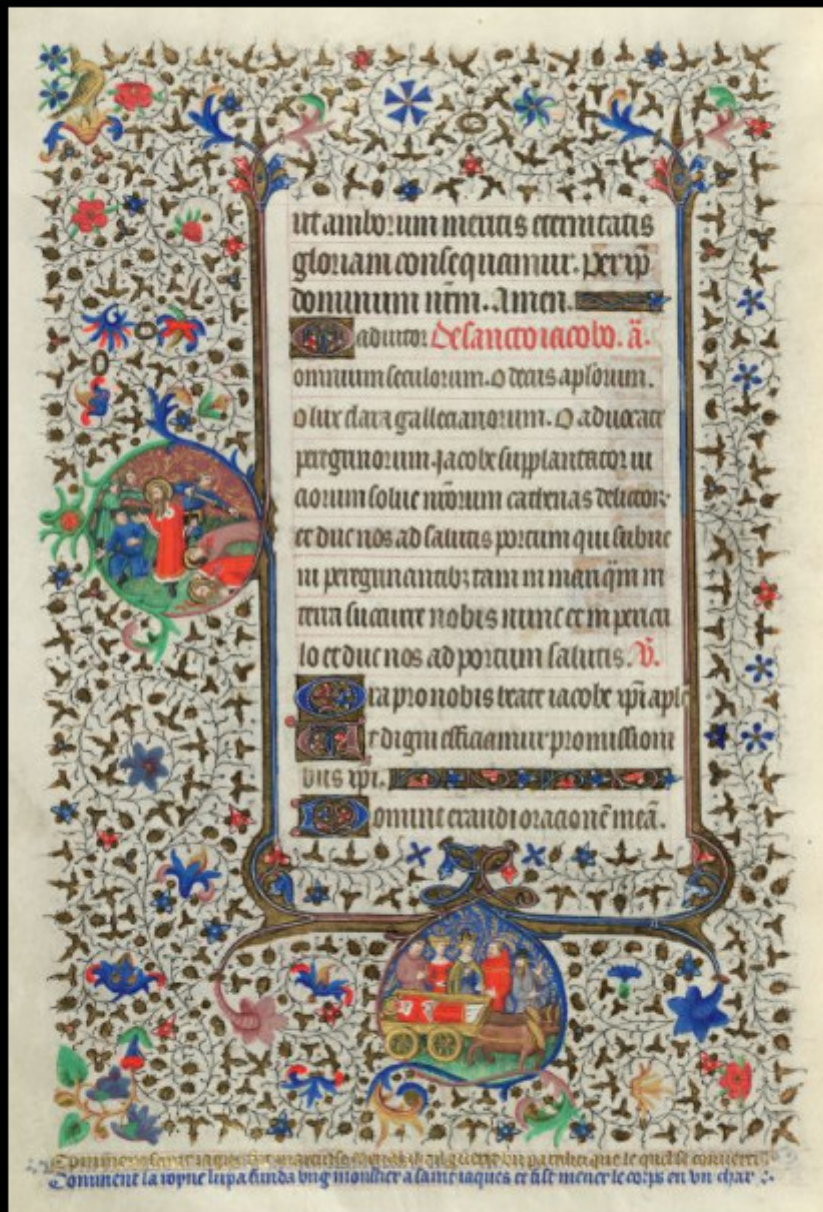 ut amborum meritis eternitatis
gloriam consequamur. per xp̄m
dominum nr̄m. Amen.
adiutor De sancto iacobo. ā.
omnium seculorum. O decus apl̄orum.
o lux clara gallecianorum. O aduocate
peregrinorum. Jacobe supplantator ui
ciorum solue nr̄orum cathenas delictor
et duc nos ad salutis portum qui subue
nis peregrinantibȝ tam in mari q̄m in
terra sucurre nobis nunc et in pericu
lo et duc nos ad portum salutis. V̄.
Ora pro nobis beate iacobe xp̄i apl̄e
Ut digni efficiamur promissioni
bus xp̄i.
Domine exaudi orationē meā.
Comment saint iaques le quel se conuerti
Comment la royne lupa funda vng monstier a saint iaques et fist mener le corps en vn char